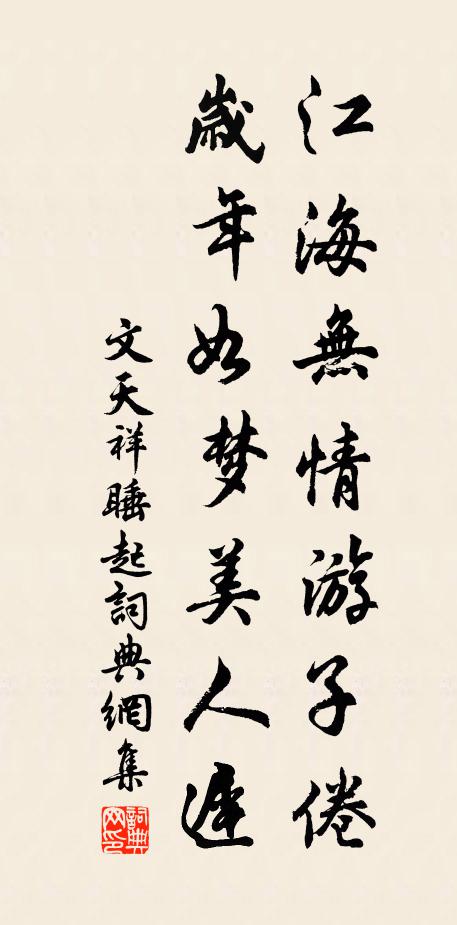 江海無情游子倦
歲年如梦美人遲
文天祥睡起詞典網集
詞典网印